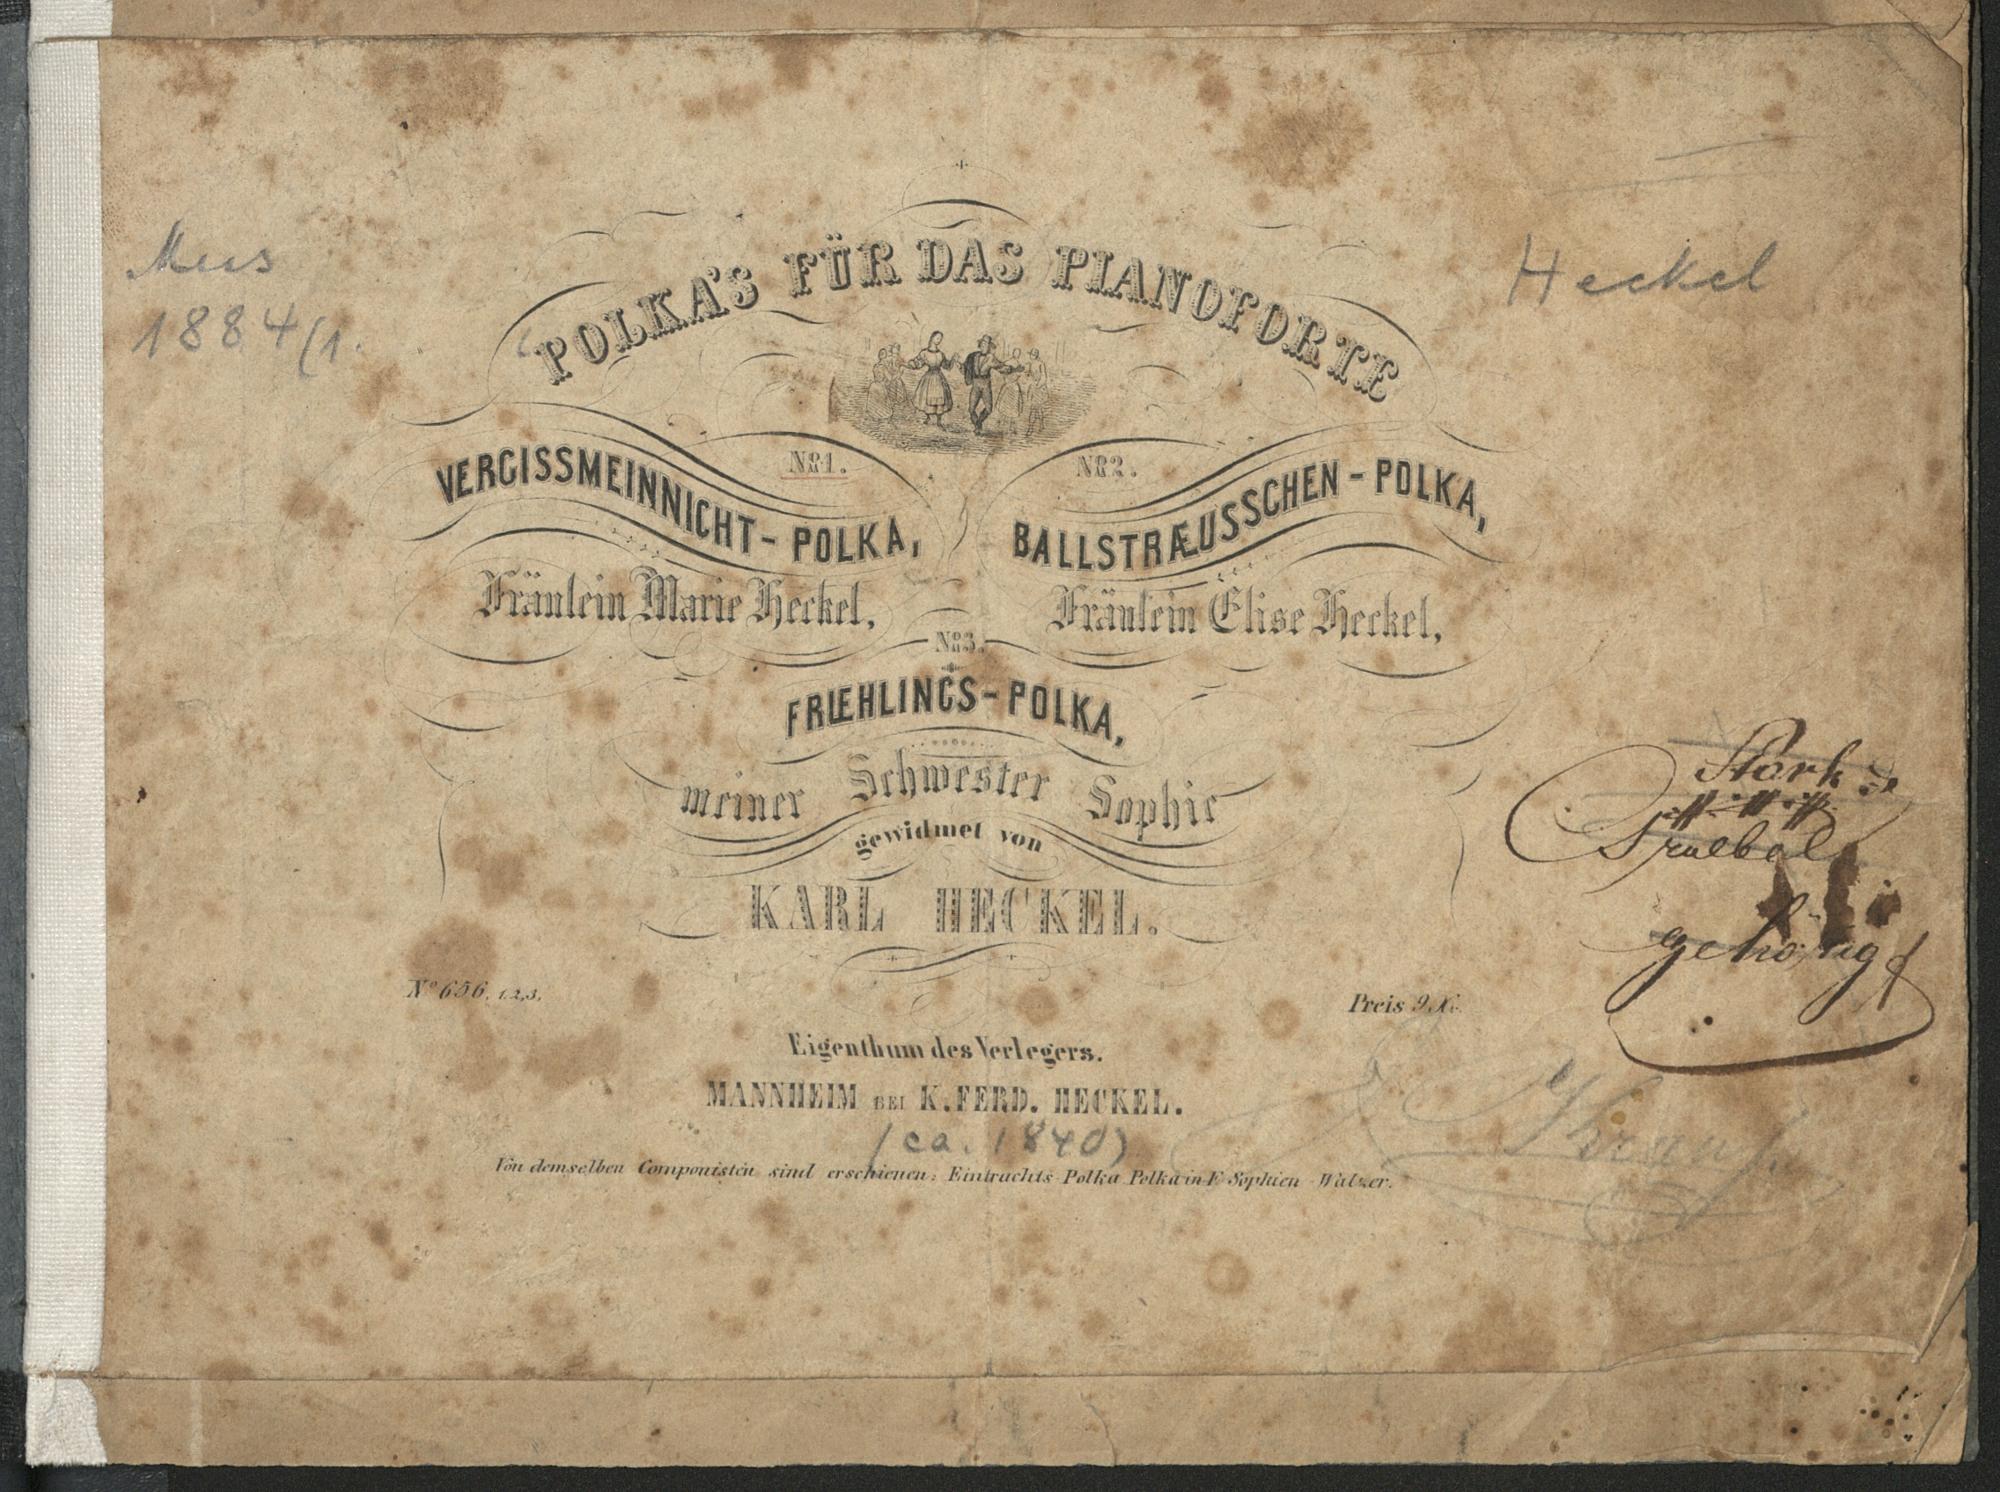 Mus
1884/1.
Heckel
POLKA'S FÜR DAS PIANOFORTE
No 1.
VERGISSMEINNICHT-POLKA,
Fräulein Marie Heckel,
No 2.
BALLSTRÆUSSCHEN-POLKA,
Fräulein Elise Heckel,
No 3.
FRUEHLINGS-POLKA,
meiner Schwester Sophie
gewidmet von
KARL HECKEL.
Stork
gehörig
No 656. 1.2,3.
Preis 9 Xr.
Eigenthum des Verlegers.
MANNHEIM BEI K. FERD. HECKEL.
(ca. 1840)
Von demselben Componisten sind erschienen: Eintrachts Polka Polka in F Sophien Walzer.